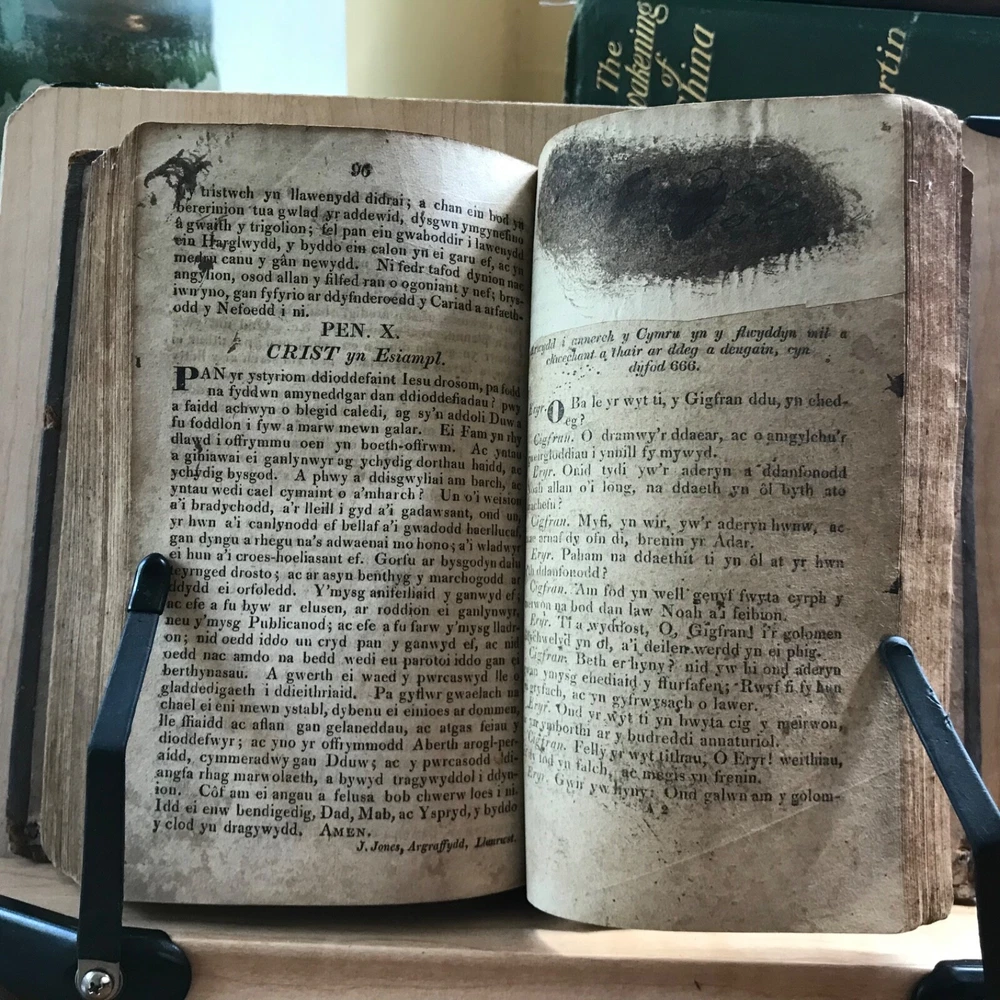 The
wakening
of
China
artin
96
tristwch yn llawenydd didrai; a chan ein bod yn
bererinion tua gwlad yr addewid, dysgwn ymgynefino
â gwaith y trigolion; fel pan ein gwaboddir i lawenydd
ein Harglwydd, y byddo ein calon yn ei garu ef, ac yn
medru canu y gân newydd. Ni fedr tafod dynion nac
angylion, osod allan y filfed ran o ogoniant y nef; brys-
iwn yno, gan fyfyrio ar ddyfnderoedd y Cariad a arfaeth-
odd y Nefoedd i ni.
PEN. X.
CRIST yn Esiampl.
PAN yr ystyriom ddioddefaint Iesu drosom, pa fodd
na fyddwn amyneddgar dan ddioddefiadau? pwy
a faidd achwyn o blegid caledi, ag sy'n addoli Duw a
fu foddlon i fyw a marw mewn galar. Ei Fam yn rhy
dlawd i offrymmu oen yn boeth-offrwm. Ac yntau
a giniawai ei ganlynwyr ag ychydig dorthau haidd, ac
ychydig bysgod. A phwy a ddisgwyliai am barch, ac
yntau wedi cael cymaint o a'mharch? Un o'i weision
a'i bradychodd, a'r lleill i gyd a'i gadawsant, ond un,
yr hwn a'i canlynodd ef bellaf a'i gwadodd haerllucaf,
gan dyngu a rhegu na's adwaenai mo hono; a'i wladwyr
ei hun a'i croes-hoeliasant ef. Gorfu ar bysgodyn dalu
teyrnged drosto; ac ar asyn benthyg y marchogodd ar
ddydd ei orfoledd. Y'mysg anifeiliaid y ganwyd ef
ac efe a fu byw ar elusen, ar roddion ei ganlynwyr,
neu y'mysg Publicanod; ac efe a fu farw y'mysg lladr-
on; nid oedd iddo un cryd pan y ganwyd ef, ac nid
oedd nac amdo na bedd wedi eu parotoi iddo gan ei
berthynasau. A gwerth ei waed y pwrcaswyd lle o
gladdedigaeth i ddieithriaid. Pa gyflwr gwaelach na
chael ei eni mewn ystabl, dybenu ei einioes ar dommen,
lle ffiaidd ac aflan gan gelaneddau, ac atgas feiau y
dioddefwyr; ac yno yr offrymmodd Aberth arogl-per-
aidd, cymmeradwy gan Dduw; ac y pwrcasodd ddi-
angfa rhag marwolaeth, a bywyd tragywyddol i ddyn-
ion. Côf am ei angau a felusa bob chwerw loes i ni.
Idd ei enw bendigedig, Dad, Mab, ac Yspryd, y byddo
y clod yn dragywydd. AMEN.
J. Jones, Argraffydd, Llanrwst.
i annerch y Cymru yn y flwyddyn mil a
chwechant a thair ar ddeg a deugain, cyn
dyfod 666.
Eryr. O Ba le yr wyt ti, y Gigfran ddu, yn ehed-
eg?
Cigfran. O dramwy'r ddaear, ac o amgylchu'r
i ynnill fy mywyd.
Eryr. Onid tydi yw'r aderyn a ddanfonodd
Noah allan o'i long, na ddaeth yn ôl byth ato
drachefn?
Cigfran. Myfi, yn wir, yw'r aderyn hwnw, ac
arnaf dy ofn di, brenin yr Adar.
Eryr. Paham na ddaethit ti yn ôl at yr hwn
ddanfonodd?
Cigfran. Am fod yn well genyf fwyta cyrph y
meirwon na bod dan law Noah a'i feibion.
Eryr. Ti a wyddost, O, Gigfran! i'r golomen
ddychwelyd yn ôl, a'i deilen werdd yn ei phig.
Cigfran. Beth er hyny? nid yw hi ond aderyn
ymysg ehediaid y ffurfafen; Rwyf fi fy hun
gryfach, ac yn gyfrwysach o lawer.
Eryr. Ond yr wyt ti yn bwyta cig y meirwon,
ymborthi ar y budreddi annaturiol.
Cigfran. Felly yr wyt tithau, O Eryr! weithiau,
fod yn falch, ac megis yn frenin.
Eryr. Gwir yw hyny: Ond galwn am y golom-
A 2